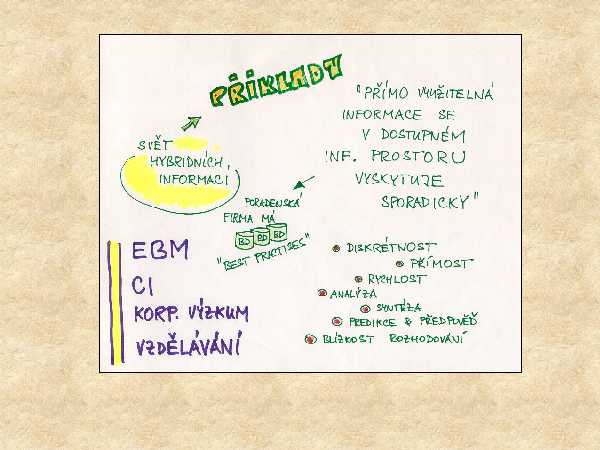 PŘÍKLADY
SVĚT
HYBRIDNÍCH
INFORMACÍ
"PŘÍMO VYUŽITELNÁ
INFORMACE SE
V DOSTUPNÉM
INF. PROSTORU
VYSKYTUJE
SPORADICKY"
PORADENSKÁ
FIRMA MÁ
BD BD BD
"BEST PRACTISES"
EBM
CI
KORP. VÝZKUM
VZDĚLÁVÁNÍ
DISKRÉTNOST
PŘÍMOST
RYCHLOST
ANALÝZA
SYNTÉZA
PREDIKCE & PŘEDPOVĚĎ
BLÍZKOST ROZHODOVÁNÍ